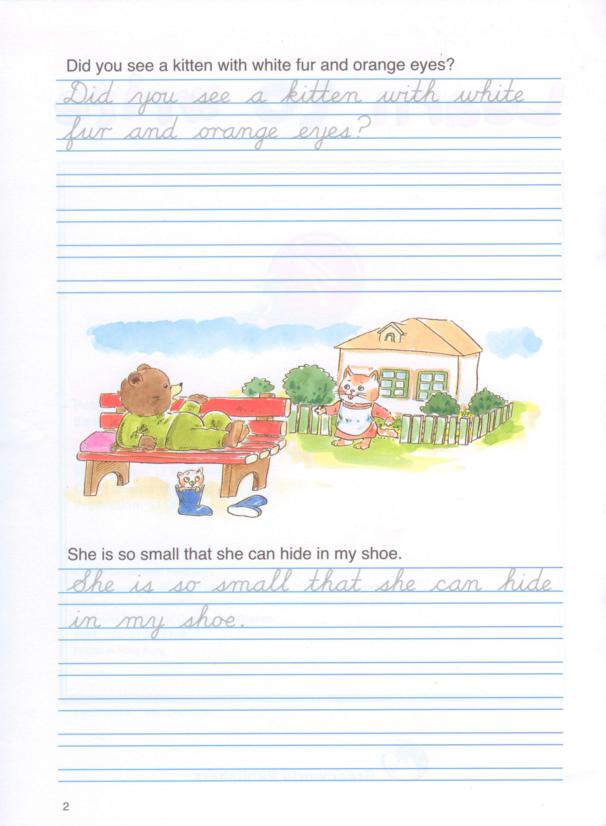 Did you see a kitten with white fur and orange eyes?
Did you see a kitten with white
fur and orange eyes?
She is so small that she can hide in my shoe.
She is so small that she can hide
in my shoe.
2